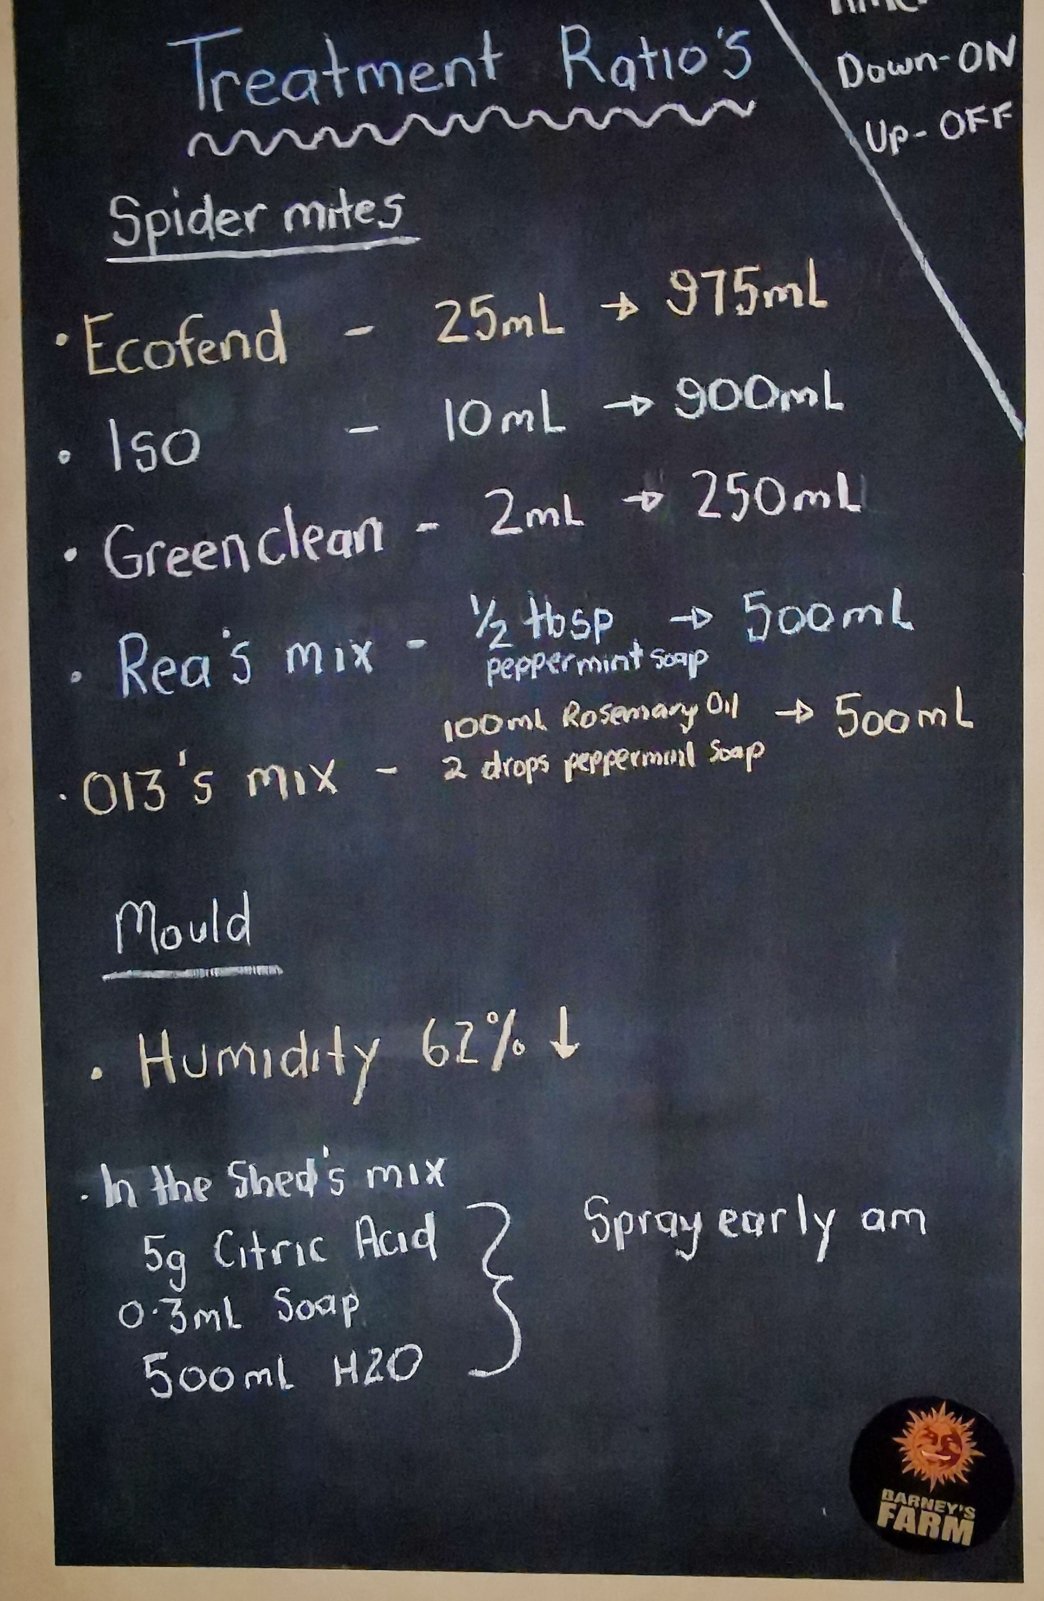 Treatment Ratio's
Down-ON
Up-OFF
Spider mites
• Ecofend - 25mL → 975mL
• Iso - 10mL → 900mL
• Greenclean - 2mL → 250mL
• Rea's mix - 1/2 tbsp → 500mL
peppermint soap
100ml Rosemary Oil → 500mL
• 013's mix - 2 drops peppermint Soap
Mould
• Humidity 62% ↓
• In the Shed's mix
5g Citric Acid
0.3mL Soap
500mL H2O
Spray early am
BARNEY'S
FARM